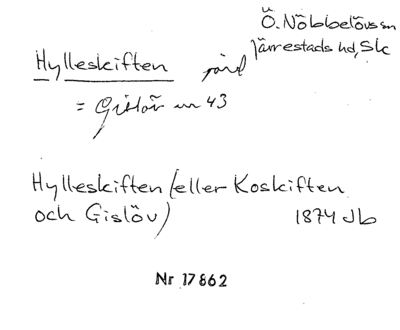 Ö. Nöbbelövs sn
Järrestads hd, Sk
Hylleskiften jord
= Gislöv nr 43
Hylleskiften (eller Koskiften
och Gislöv) 1874 Jb
Nr 17862